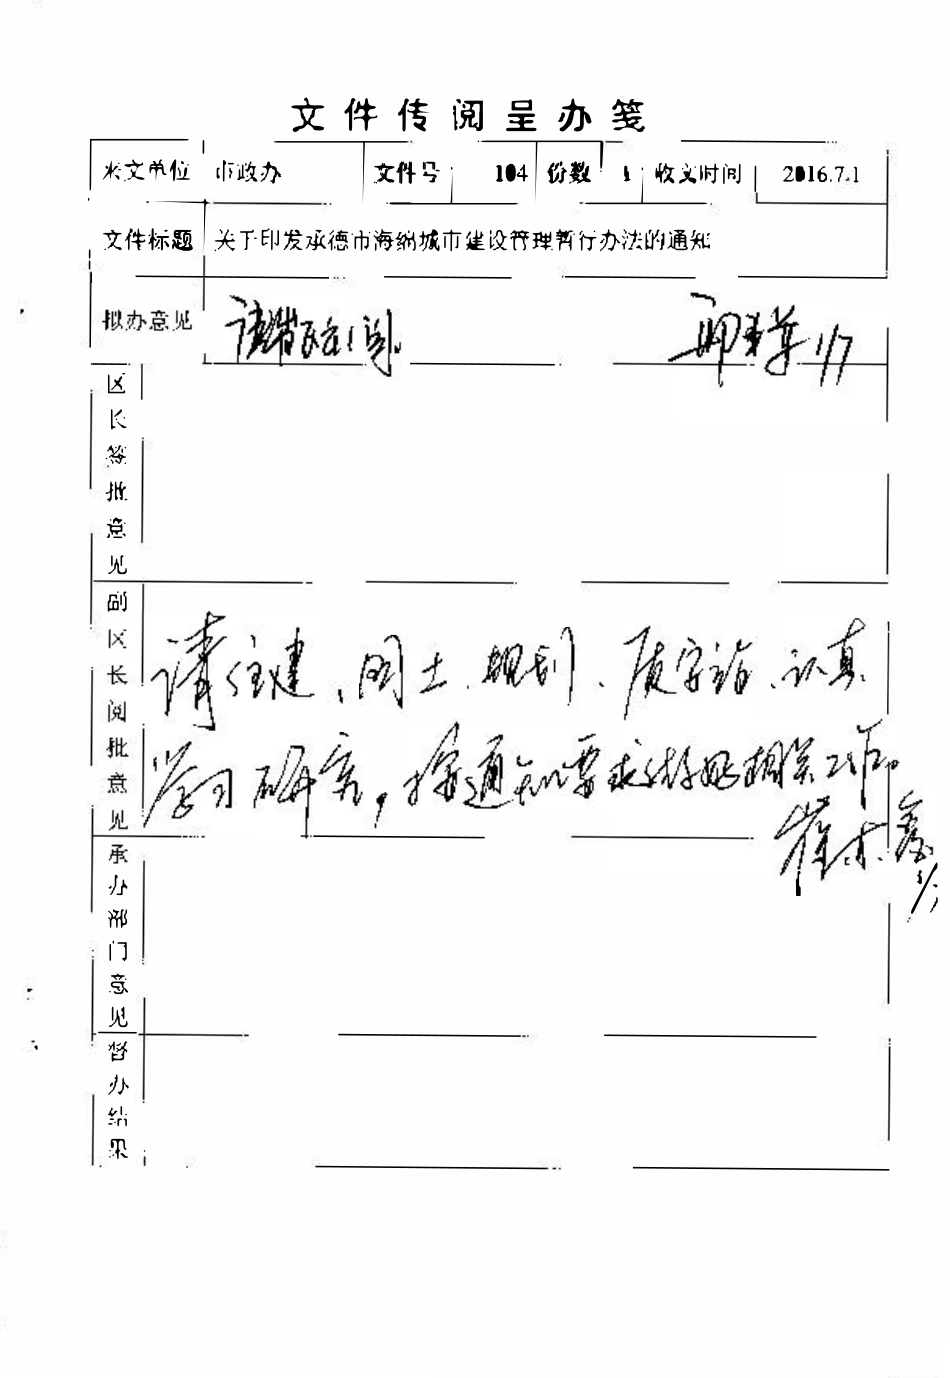 文件传阅呈办笺
来文单位 市政办 文件号 104 份数 1 收文时间 2016.7.1
文件标题 关于印发承德市海绵城市建设管理暂行办法的通知
拟办意见 请 阅。 1/7
区长签批意见
副区长阅批意见
请住建、国土、规划、质安站、认真
学习研究，按通知要求 好相关工作。
崔 鑫
承办部门意见
督办结果